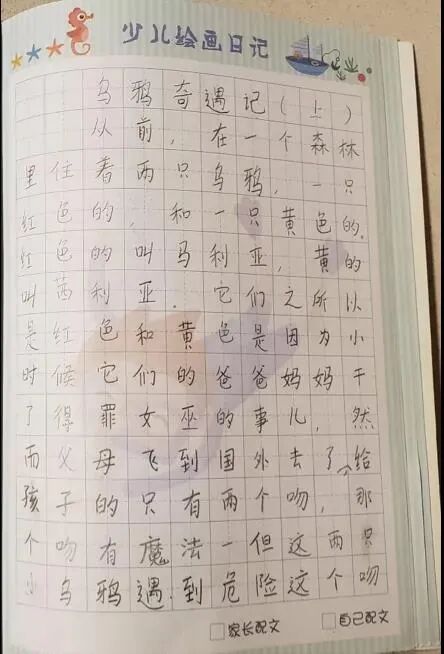 少儿绘画日记
乌鸦奇遇记(上)
从前,在一个森林
里住着两只乌鸦,一只
红色的,和一只黄色的.
红色的叫马利亚,黄的
叫茜利亚.它们之所以
是红色和黄色是因为小
时候它们的爸爸妈妈干
了得罪女巫的事儿,然
而父母飞到国外去了,给
孩子的只有两个吻,那
个吻有魔法一但这两只
小乌鸦遇到危险这个吻
家长配文 自己配文